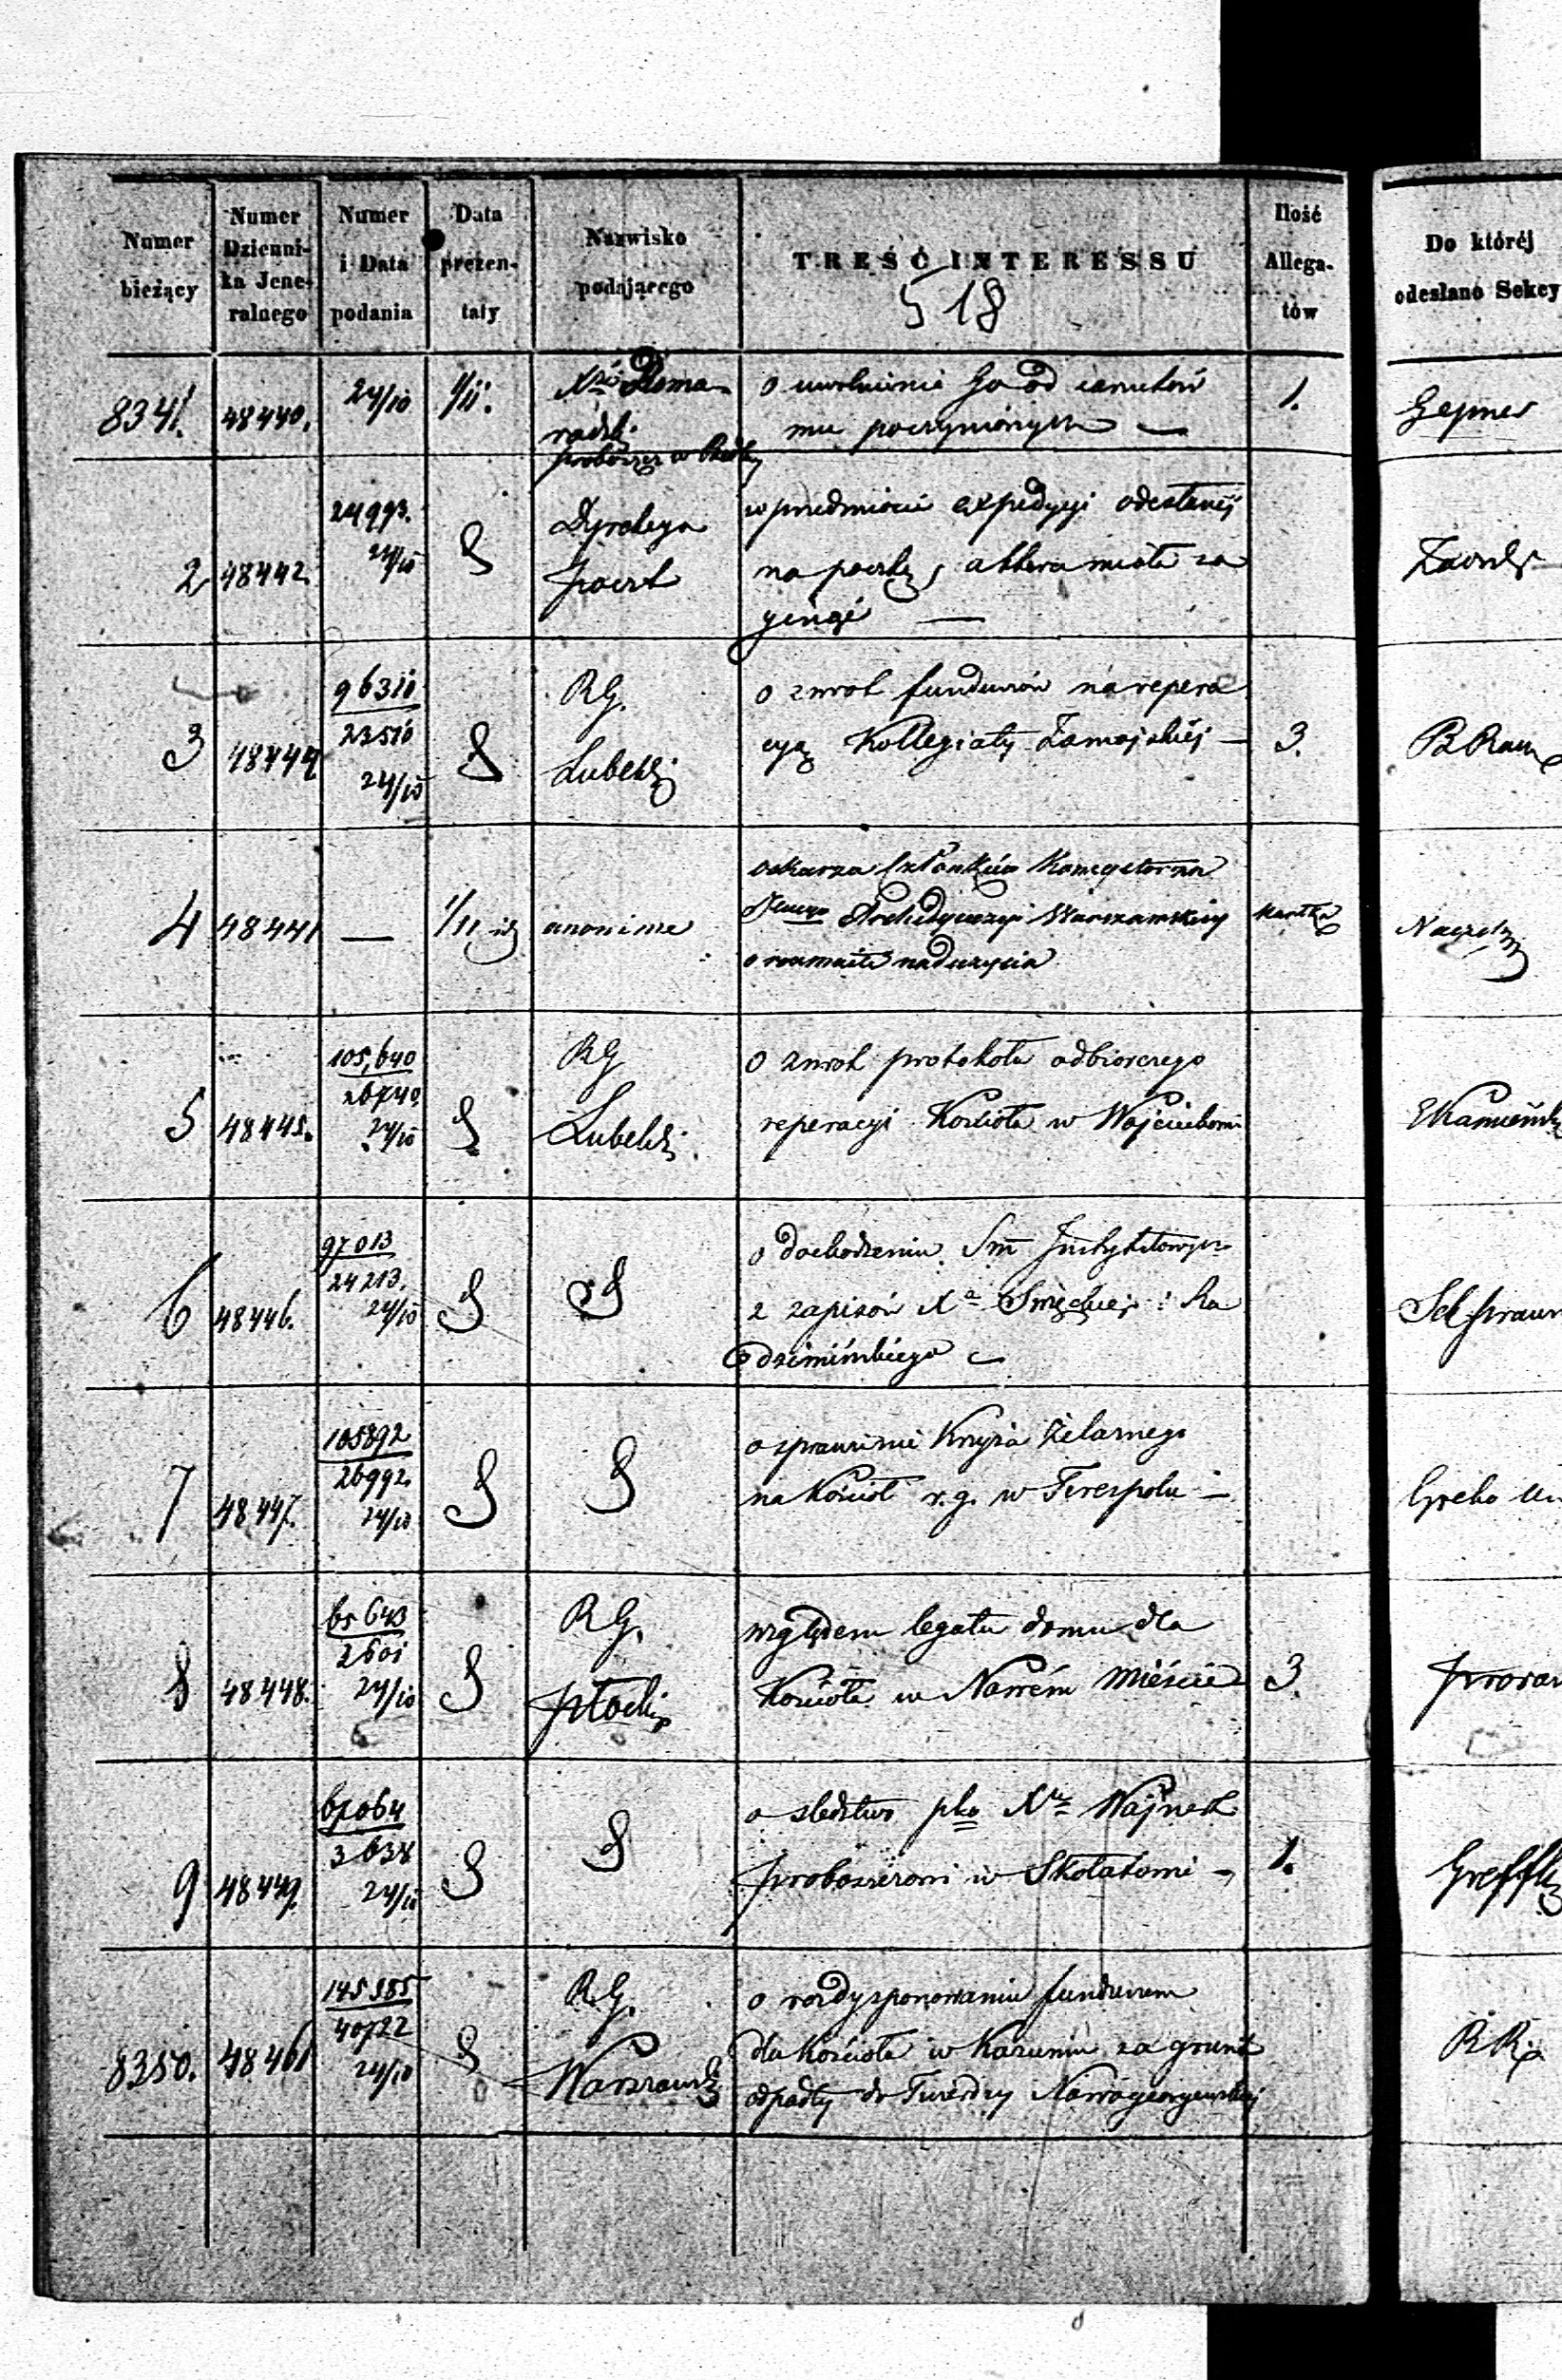 Numer bieżący | Numer Dzienni-ka Jene-ralnego | Numer i Data podania | Data prezen-taty | Nazwisko podającego | TREŚĆ INTERESSU | Ilość Allega-tów | Do któréj odesłano Sekcy
518
8341. 48440. 24/10 1/11.
o uwolnienie Go od zarzutów
mu poczynionych —
1.
Gepner
2 48442. 24993. 24/10
Dyrekcya
poczt
w przedmiocie expedycyi odesłanéj
na pocztę, a która miała za
ginąć —
3 48444 96310 23510 24/10
RG.
Lubelski
o zwrot funduszów na repera
cyą Kollegiaty Zamojskiéj —
3.
B Rau
4 48441 — 1/11
anonime
oskarza Członków Konsystorza
Archidyecezyi Warszawskiey
o rozmaite nadużycia
kartka
Naczel
5 48445. 105,640 26740. 24/10
RG
Lubelski.
o zwrot protokołu odbiorczego
reperacyi Kościoła w Wojciechow
6 48446. 97013 24213. 24/10
o dochodzeniu Sm Instytutowych
z zapisów Xa i Ra
dzimińskiego
7 48447. 105892 26992. 24/10
o sprawienie Krzyża żelaznego
na Kościół r. g. w Terespolu —
8 48448. 65643 2601 24/10
RG.
Płocki
względem legatu domu dla
Kościoła w Nowém Mieście
3.
9 48449. 67064 3638 24/10
o śledztwo pko Xu Wajnert
proboszczowi w Skołatowi —
1.
8350. 48461 145385 40722 24/10
RG.
Warszawski
o rozdysponowaniu funduszem
dla Kościoła w Kazuniu za grunt
odpadły do Twierdzy Nowogeorgewskiej